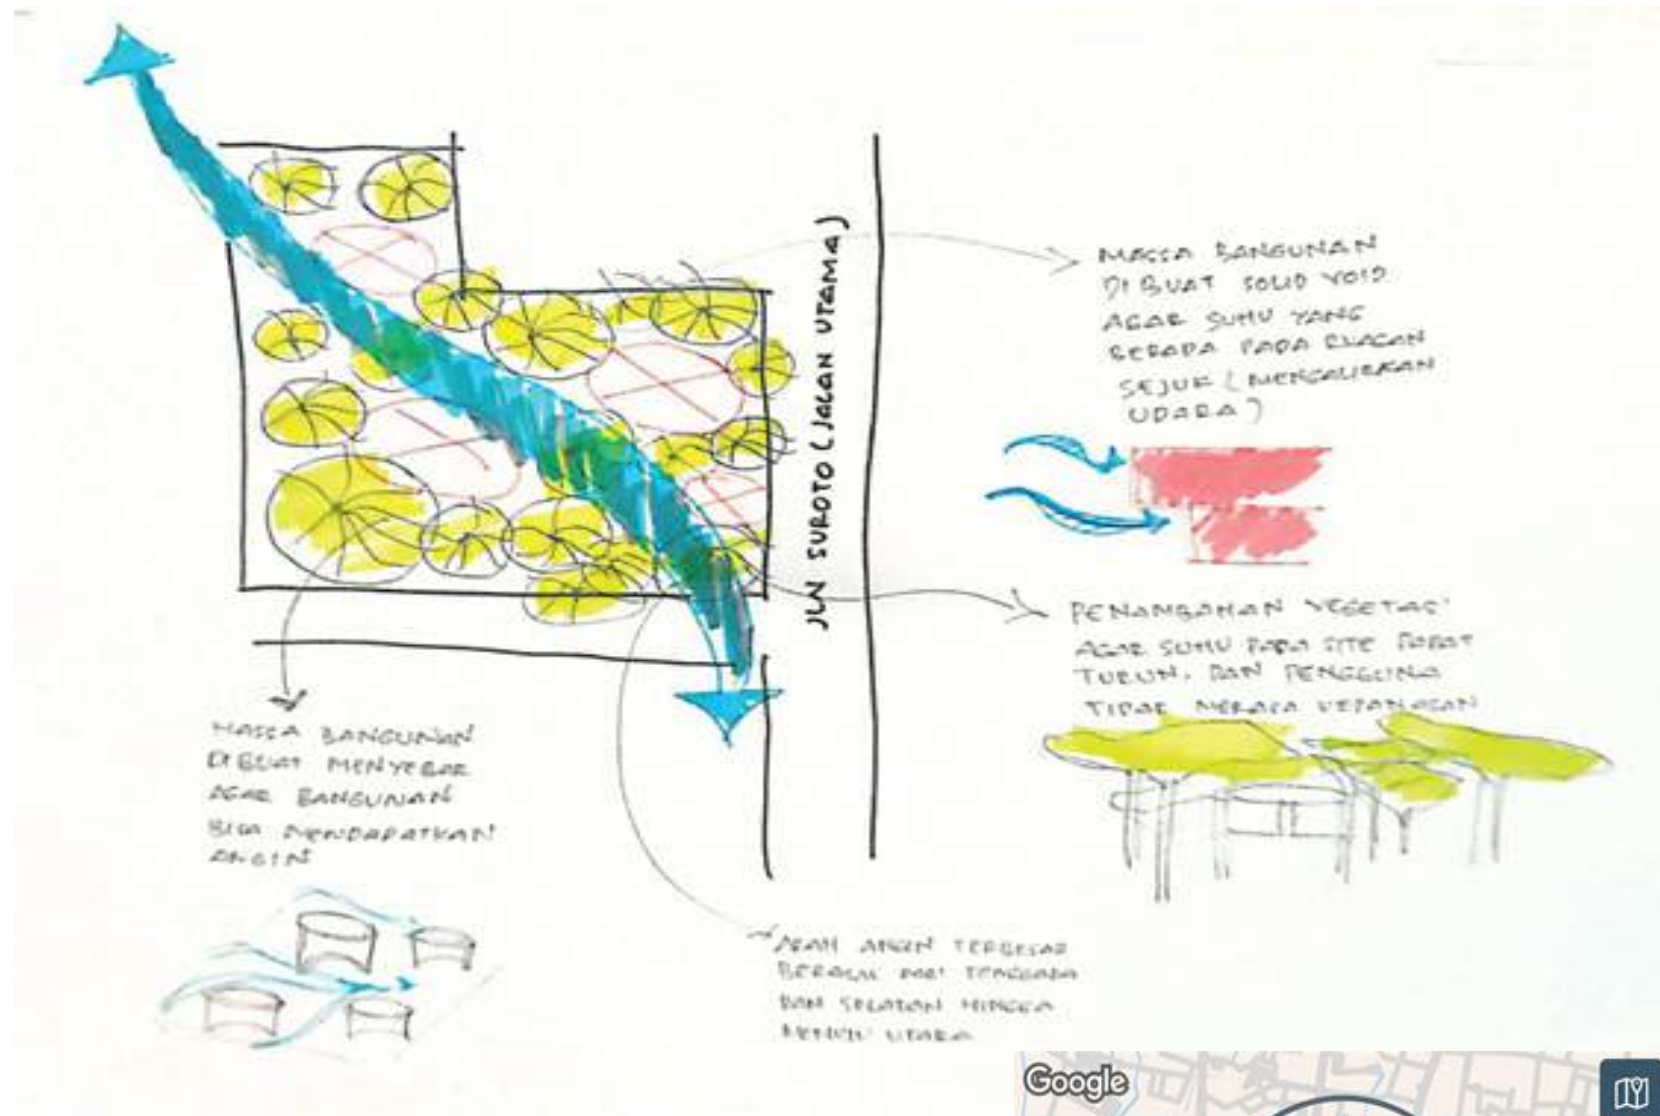 JLN SUROTO (JALAN UTAMA)
MASSA BANGUNAN
DI BUAT SOLID VOID
AGAR SUHU YANG
BERADA PADA RUAGAN
SEJUK (MENGALIRKAN
UDARA)
PENAMBAHAN VEGETASI
AGAR SUHU PADA SITE DAPAT
TURUN, DAN PENGGUNA
TIDAK MERASA KEPANASAN
MASSA BANGUNAN
DI BUAT MENYEBAR
AGAR BANGUNAN
BISA MENDAPATKAN
ANGIN
ARAH ANGIN TERBESAR
BERASAL DARI TENGGARA
DAN SELATAN HINGGA
MENUJU UTARA
Google